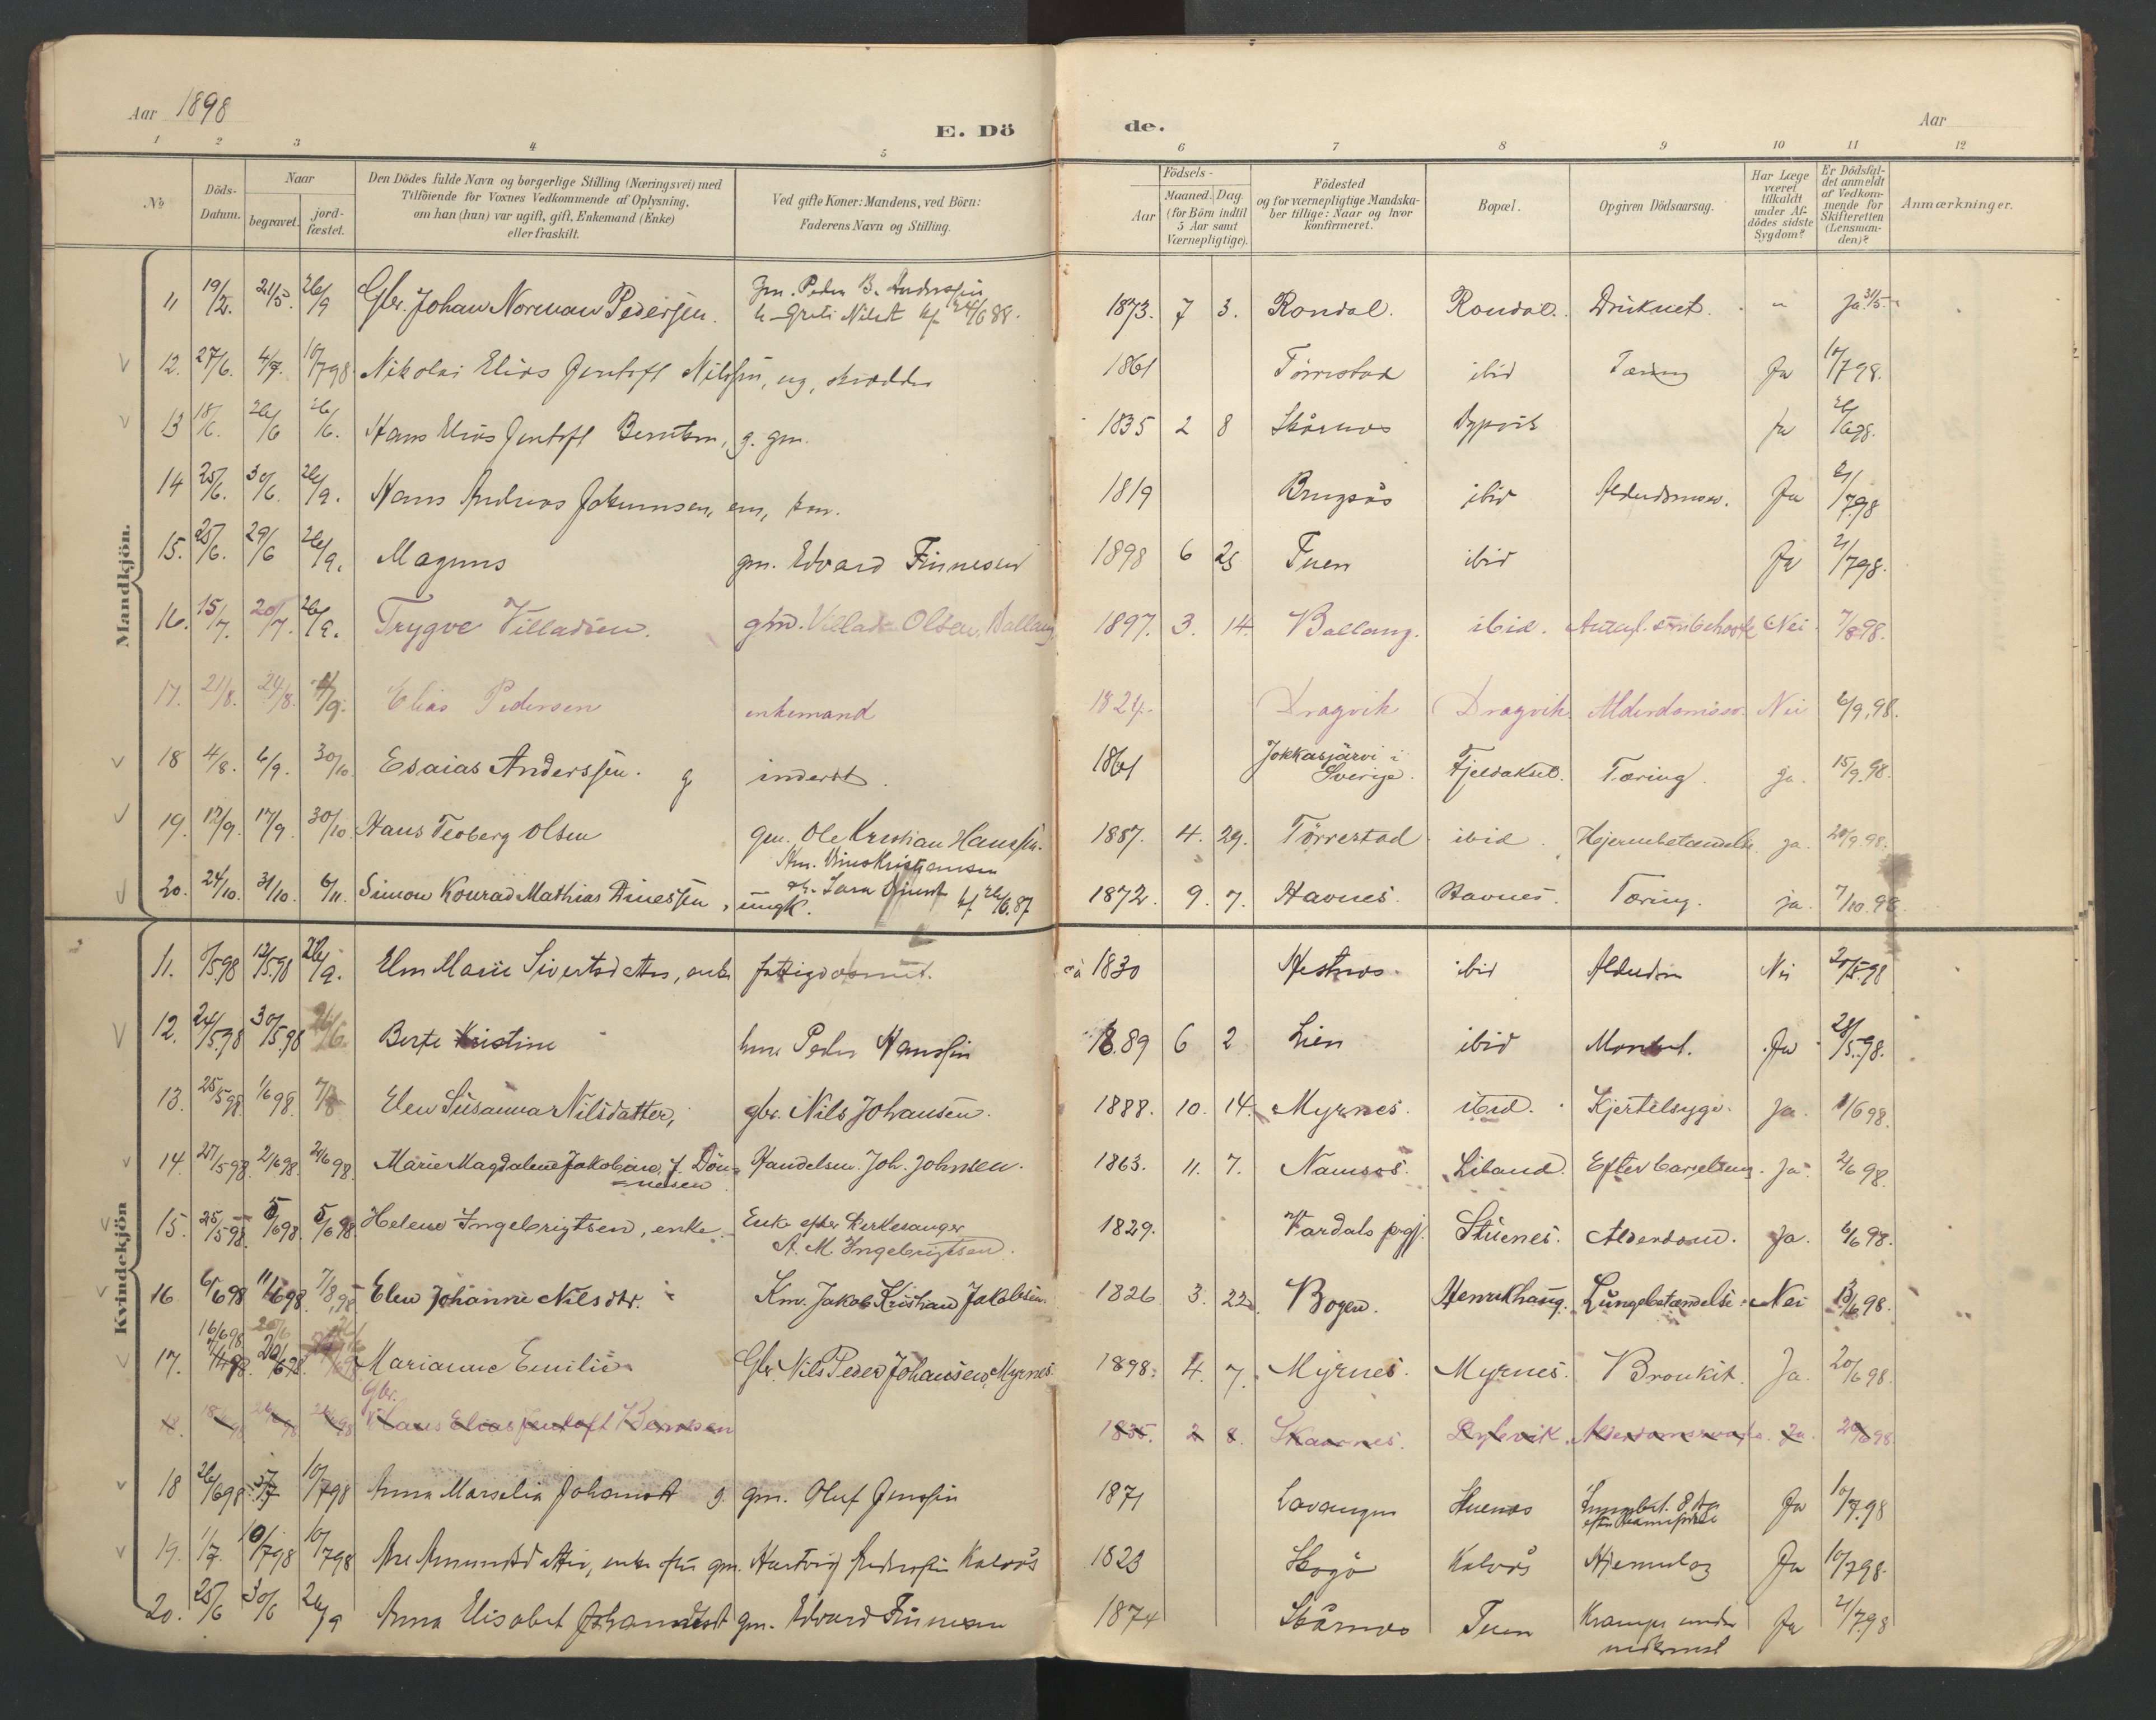 Aar 1898
E. Dö de. Aar
1 2 3 4 5 6 7 8 9 10 11 12
No. Döds-Datum. Naar begravet. jord-fæstet. Den Dödes fulde Navn og borgerlige Stilling (Næringsvei) med Tilföiende for Voxnes Vedkommende af Oplysning, om han (hun) var ugift, gift, Enkemand (Enke) eller fraskilt. Ved gifte Koner: Mandens, ved Börn: Faderens Navn og Stilling. Födsels- Aar Maaned. Dag. (for Börn indtil 5 Aar samt Værnepligtige). Födested og for værnepligtige Mandskaber tillige: Naar og hvor konfirmeret. Bopæl. Opgiven Dödsaarsag. Har Læge været tilkaldt under Afdödes sidste Sygdom? Er Dödsfaldet anmeldt af Vedkommende for Skifteretten (Lensmanden)? Anmærkninger.
Mandkjön.
11 19/2. 21/5. 26/9 Gbr. Johan Norman Pedersen. Gm. Peder B. Anderssen 1873. 7 3. Rondal. Rondal. Druknet. " Ja 31/5
12. 27/6. 4/7. 10/798 Nikolai Elias Jentoft Nilssen, ug, skrædder 1861 Törrestad ibid Tæring Ja 10/798.
13 18/6. 26/6 26/6. Hans Elias Jentoft Berntsen, g. gm. 1835 2 8 Skårnes Dypvik Ja 26/698.
14 25/6. 30/6. 26/9. Hans Andreas Jokumsen, em, 1819 ibid Ja 21/798
15. 25/6. 29/6 26/9. Magnus gm. Edvard Finnesen 1898 6 25 Tuen ibid Ja 21/798.
16. 15/7. 20/7. 26/9. Trygve Villadsen. gbr. Villads Olsen, Ballang 1897. 3. 14. Ballang. ibid. Nei 7/898.
17. 21/8. 24/8. 4/9. Elias Pedersen enkemand 1824. Dragvik Dragvik Alderdomssv. Nei 6/9,98.
18 4/8. 6/9. 30/10 Esaias Anderssen. g inderst. 1861 Jokkasjärvi i Sverige. Fjeldaksel. Tæring. ja. 15/9.98.
19. 12/9. 17/9. 30/10. Hans Teoberg Olsen gm. Ole Kristian Hanssen. 1887. 4. 29. Törrestad ibid. Hjernebetændelse ja. 20/9.98.
20. 24/10. 31/10. 6/11. Simon Konrad Mathias Dinessen, ungk. 1872. 9. 7. Havnes. Havnes. Tæring. ja. 7/10.98
Kvindekjön
11. 8/598 12/598 26/9. Elen Marie Sivertsdatter, enke fattigvæsenet. 1830 Hestnes ibid Alderdom Nei 20/598
12. 24/598 30/598 26/6. Berte Kristine hmr Peder Hanssen 1889 6 2 Lien ibid Ja 28/598.
13. 25/598. 1/698. 7/8 Elen Susanna Nilsdatter, gbr. Nils Johansen. 1888. 10. 14. Myrnes. ibid. Kjertelsyge. Ja. 1/698.
14. 27/598. 2/698. 26/698. Marie Magdalene Jakobine J. Dönnesen Handelsm. Joh. Johnsen. 1863. 11. 7. Namsos. Liland. Efter barselseng. Ja. 2/698.
15. 25/598. 5/698. 5/698. Helene Ingebrigtsen, enke. Enke efter Kirkesanger A. M. Ingebrigtsen. 1829. Vardals prgj. Stuenes. Alderdom. Ja. 6/698.
16 6/698 11/698. 7/8,98 Elen Johanne Nilsdtr. Km. Jakob Kristian Jakobsen. 1826 3. 22. Bogen. Henrikhaug. Lungebetændelse. Nei 13/698.
17. 16/698. 20/698. Marianne Emilie Gbr. Nils Peder Johansen, Myrnes. 1898. 4. 7. Myrnes. Myrnes. Bronkit. Ja. 20/698.
18. Gbr. Hans Elias Jentoft Berntsen 1835. 2 8. Skaarnes. Dybvik. Ja. 26/698.
18 26/698 10/798 Anna Marselia Johansdt g. gm. Oluf Jenssen 1871 Lavangen Ja 10/798
19. 1/7. 10/798 10/798 Ane Amundsdatter, enke efter gm. Hartvig Anderssen Kalvås 1823 Skogö Kalvås Ja 10/798.
20. 25/6 30/6 26/9 Anna Elisabet Johansdt gm. Edvard Finnesen 1874 Skårnes Tuen Krampe under nedkomst Ja 21/798